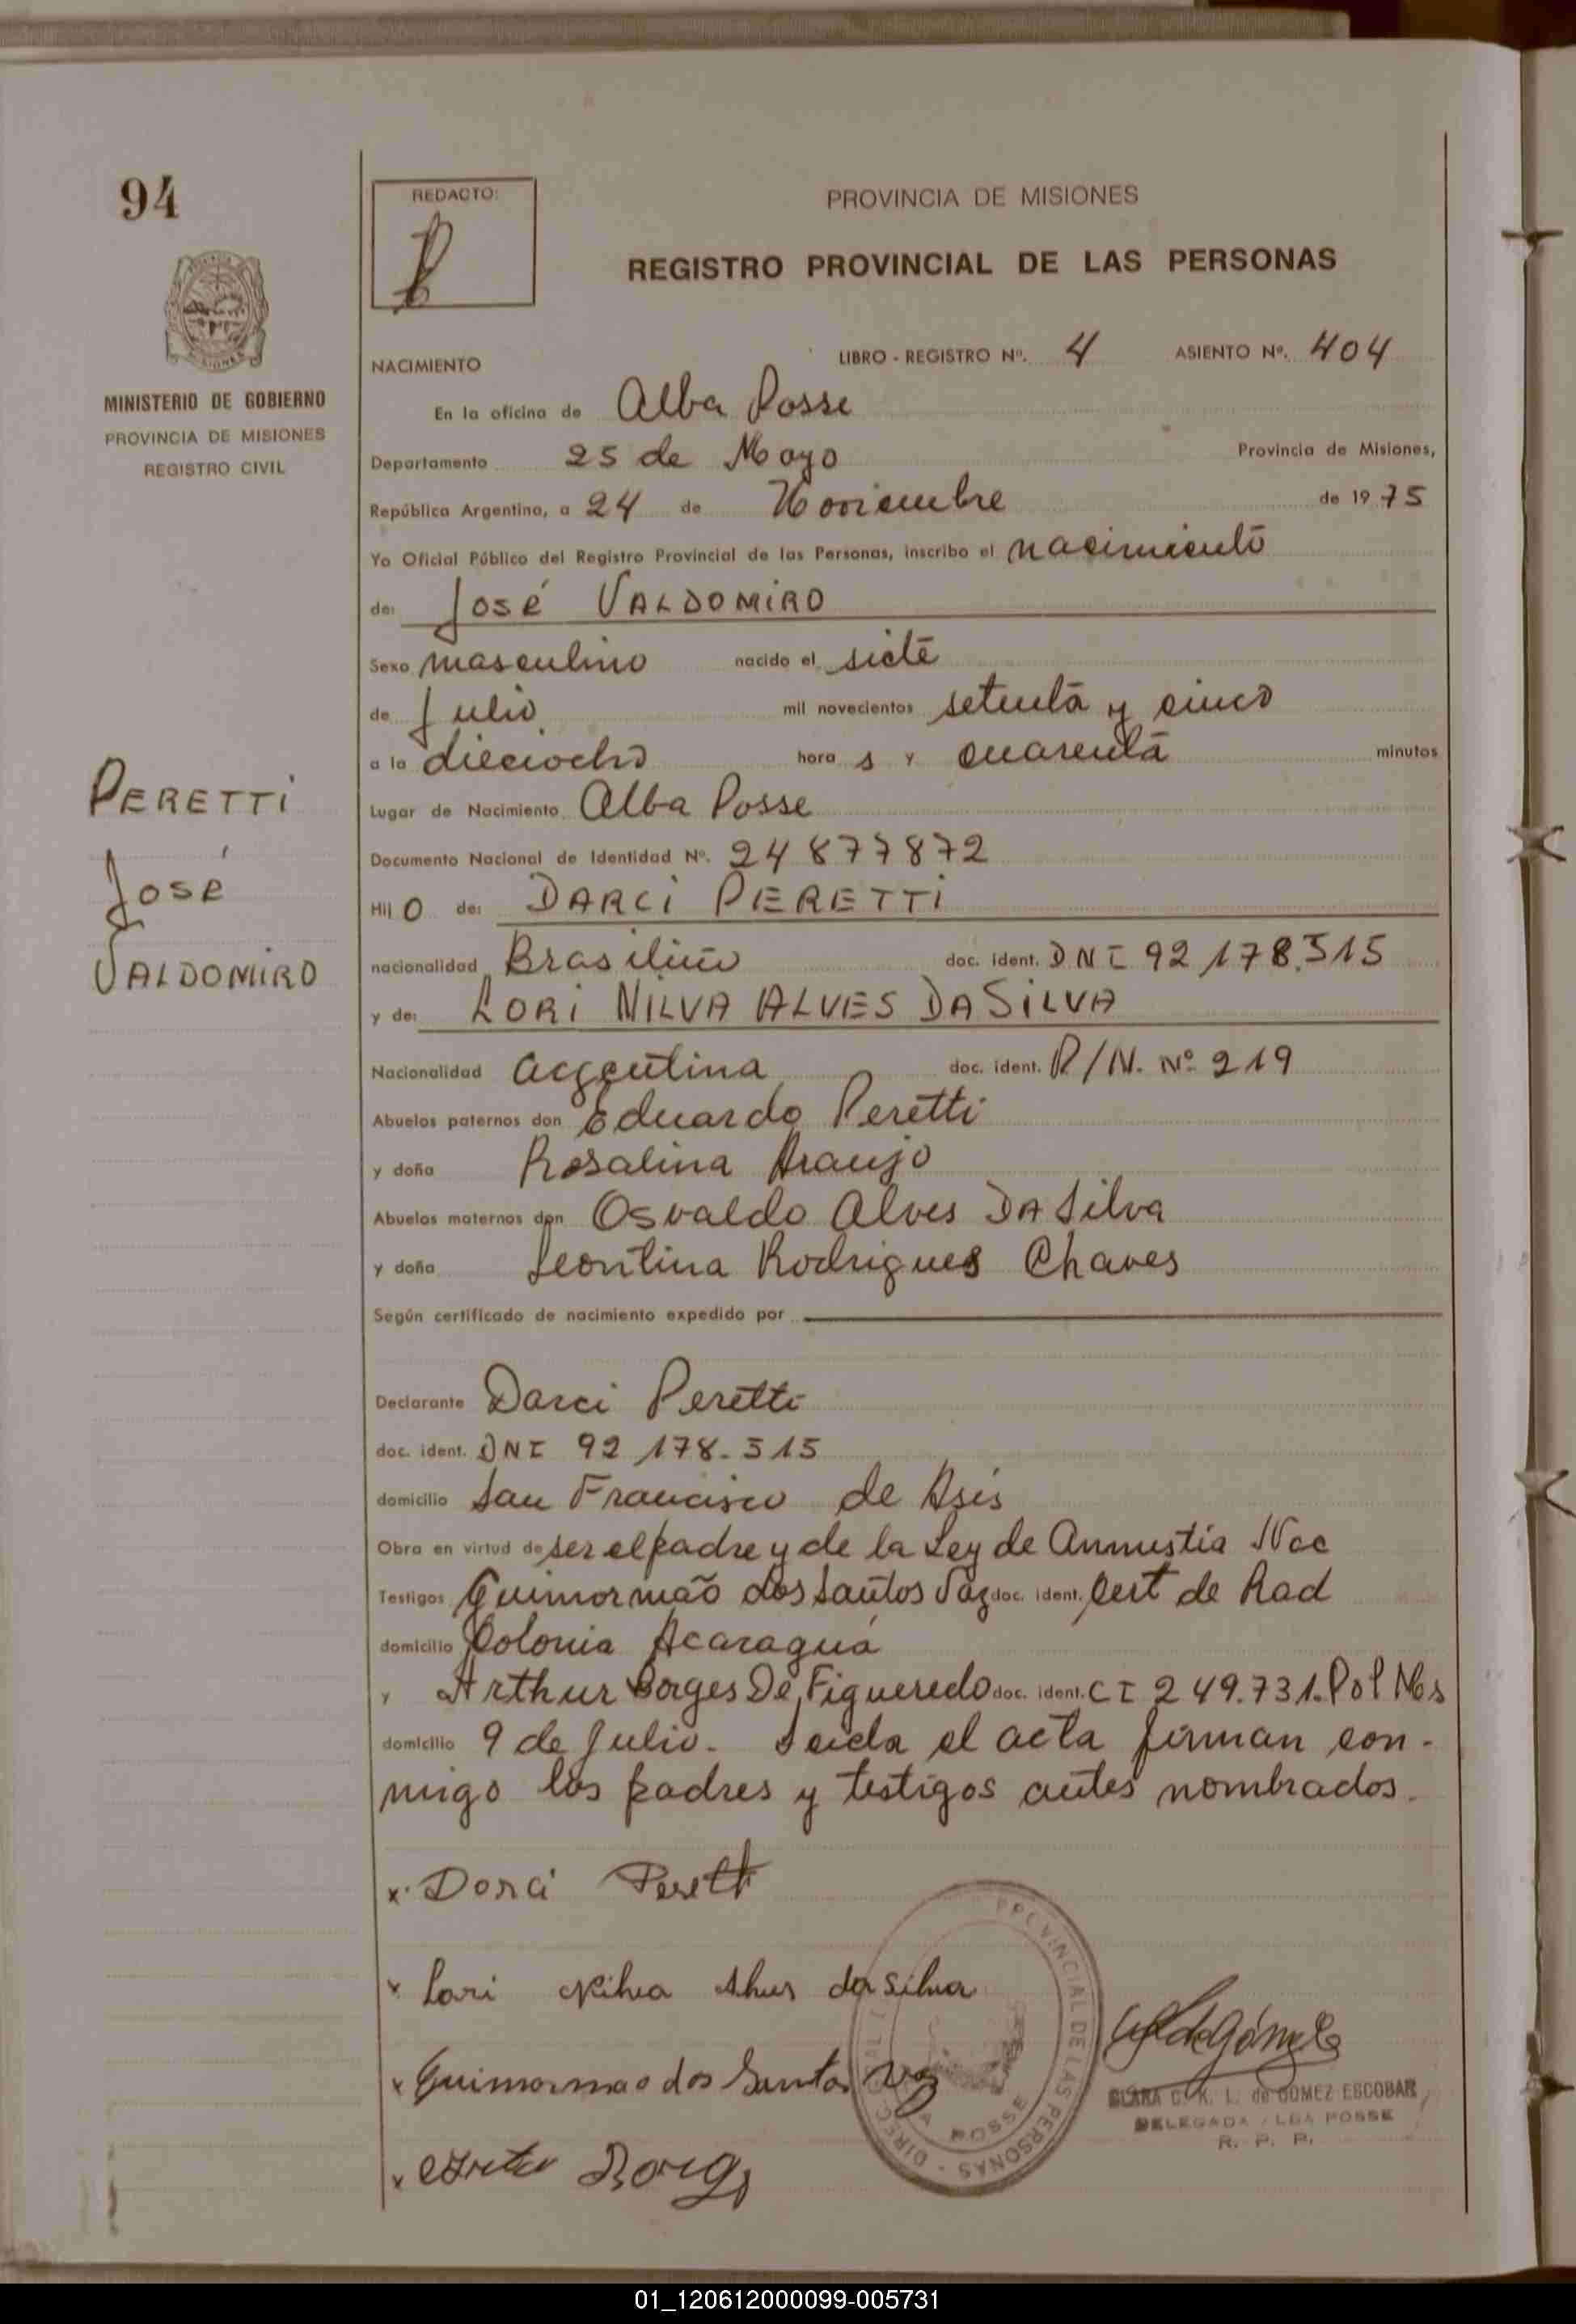 94
MINISTERIO DE GOBIERNO
PROVINCIA DE MISIONES
REGISTRO CIVIL
PERETTI
JOSÉ
VALDOMIRO
REDACTO:
PROVINCIA DE MISIONES
REGISTRO PROVINCIAL DE LAS PERSONAS
NACIMIENTO LIBRO - REGISTRO Nº. 4 ASIENTO Nº. 404
En la oficina de Alba Posse
Departamento 25 de Mayo Provincia de Misiones,
República Argentina, a 24 de Noviembre de 1975
Yo Oficial Público del Registro Provincial de las Personas, inscribo el nacimiento
de: JOSÉ VALDOMIRO
Sexo masculino nacido el siete
de Julio mil novecientos setenta y cinco
a la dieciocho hora s y cuarenta minutos
Lugar de Nacimiento Alba Posse
Documento Nacional de Identidad Nº. 24 877872
Hij O de: DARCI PERETTI
nacionalidad Brasilieño doc. ident. DNI 92 178.315
y de: LORI NILVA ALVES DA SILVA
Nacionalidad argentina doc. ident. P/N. Nº 219
Abuelos paternos don Eduardo Peretti
y doña Rosalina Araujo
Abuelos maternos don Osvaldo Alves DA Silva
y doña Leontina Rodrigues Chaves
Según certificado de nacimiento expedido por
Declarante Darci Peretti
doc. ident. DNI 92 178-315
domicilio San Francisco de Asis
Obra en virtud de ser el padre y de la Ley de Anmustia Nac
Testigos Guimormão dos Santos Vaz doc. ident. Cert de Rad
domicilio Colonia Acaragua
y Arthur Borges De Figueredo doc. ident. CI 249.731. Pol Mis
domicilio 9 de Julio. Leida el acta firman con-
migo los padres y testigos antes nombrados.
x Darci Peretti
x Lori Nilva Alves da Silva
x Guimormao dos Santos Vaz
PROVINCIAL DE LAS PERSONAS
POSSE
CLARA C. K. L. de GOMEZ ESCOBAR
DELEGADA ALBA POSSE
R. P. P.
01_120612000099-005731